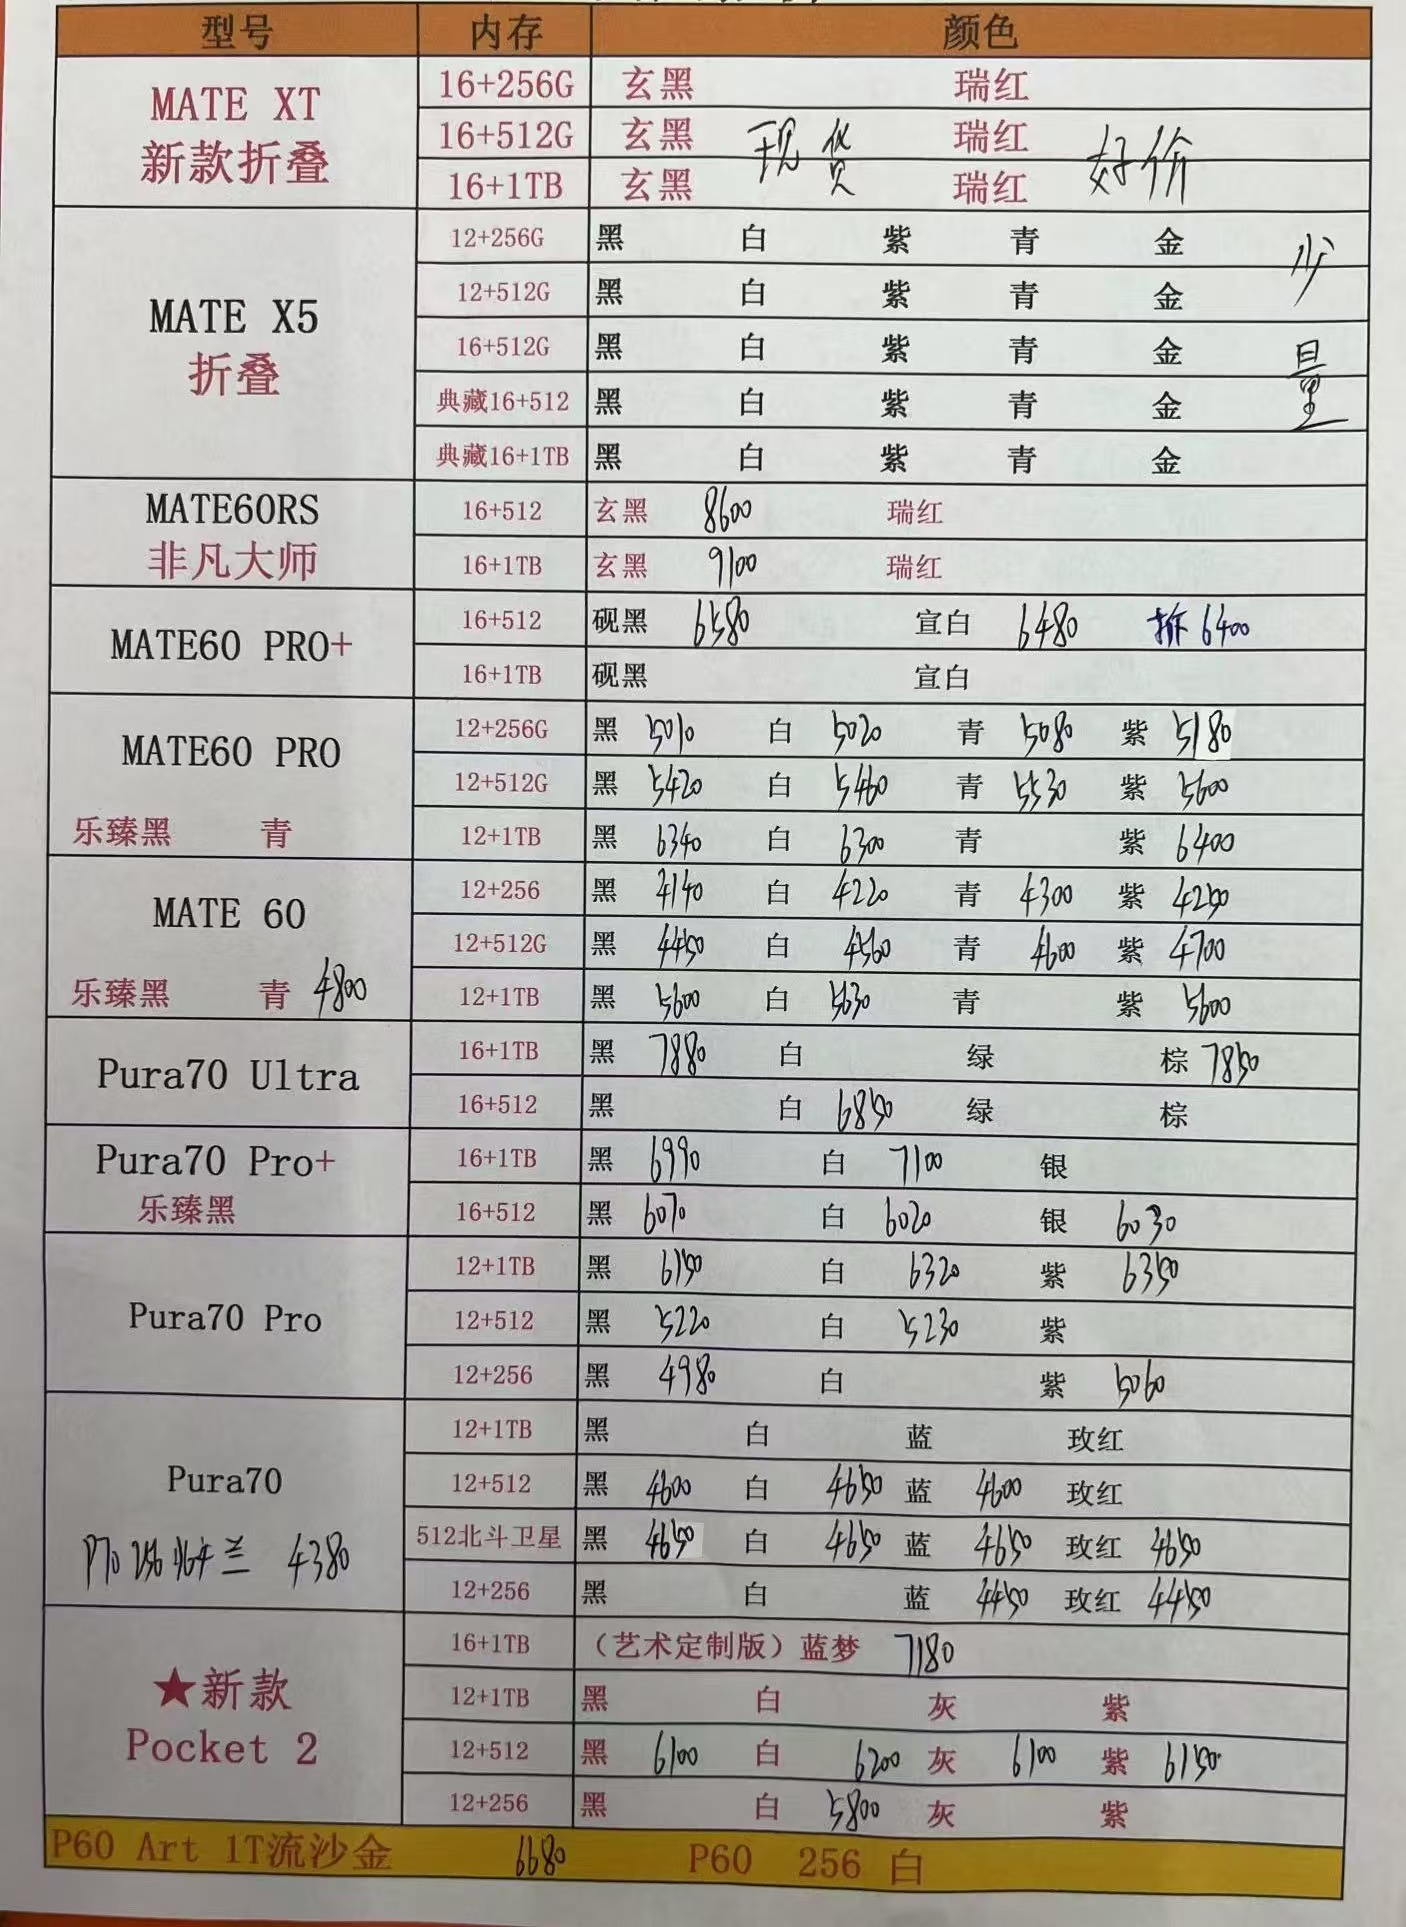 型号 内存 颜色
MATE XT
新款折叠
16+256G 玄黑 瑞红
16+512G 玄黑 现货 瑞红 好价
16+1TB 玄黑 瑞红
MATE X5
折叠
12+256G 黑 白 紫 青 金 少
12+512G 黑 白 紫 青 金
16+512G 黑 白 紫 青 金 量
典藏16+512 黑 白 紫 青 金
典藏16+1TB 黑 白 紫 青 金
MATE60RS
非凡大师
16+512 玄黑 8600 瑞红
16+1TB 玄黑 9100 瑞红
MATE60 PRO+
16+512 砚黑 6580 宣白 6480 拆 6400
16+1TB 砚黑 宣白
MATE60 PRO
乐臻黑 青
12+256G 黑 5010 白 5020 青 5080 紫 5180
12+512G 黑 5420 白 5460 青 5530 紫 5600
12+1TB 黑 6340 白 6300 青 紫 6400
MATE 60
乐臻黑 青 4800
12+256 黑 4140 白 4220 青 4300 紫 4250
12+512G 黑 4450 白 4560 青 4600 紫 4700
12+1TB 黑 5600 白 5630 青 紫 5600
Pura70 Ultra
16+1TB 黑 7880 白 绿 棕 7850
16+512 黑 白 6850 绿 棕
Pura70 Pro+
乐臻黑
16+1TB 黑 6990 白 7100 银
16+512 黑 6070 白 6020 银 6030
Pura70 Pro
12+1TB 黑 6150 白 6320 紫 6350
12+512 黑 5220 白 5230 紫
12+256 黑 4980 白 紫 5060
Pura70
P70 256 兰 4380
12+1TB 黑 白 蓝 玫红
12+512 黑 4600 白 4650 蓝 4600 玫红
512北斗卫星 黑 4650 白 4650 蓝 4650 玫红 4650
12+256 黑 白 蓝 4450 玫红 4450
★新款
Pocket 2
16+1TB (艺术定制版)蓝梦 7180
12+1TB 黑 白 灰 紫
12+512 黑 6100 白 6200 灰 6100 紫 6150
12+256 黑 白 5800 灰 紫
P60 Art 1T流沙金 6680 P60 256 白